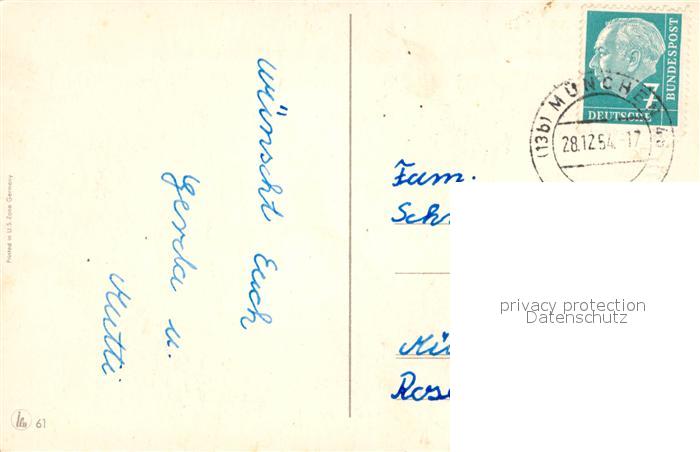 wünscht Euch
Gerda u.
Mutti
Printed in U.S. Zone Germany
61
7
DEUTSCHE
BUNDESPOST
(13b) MÜNCHEN
28.12.54.-17
Fam.
Sch
privacy protection
Datenschutz
Mü
Ros